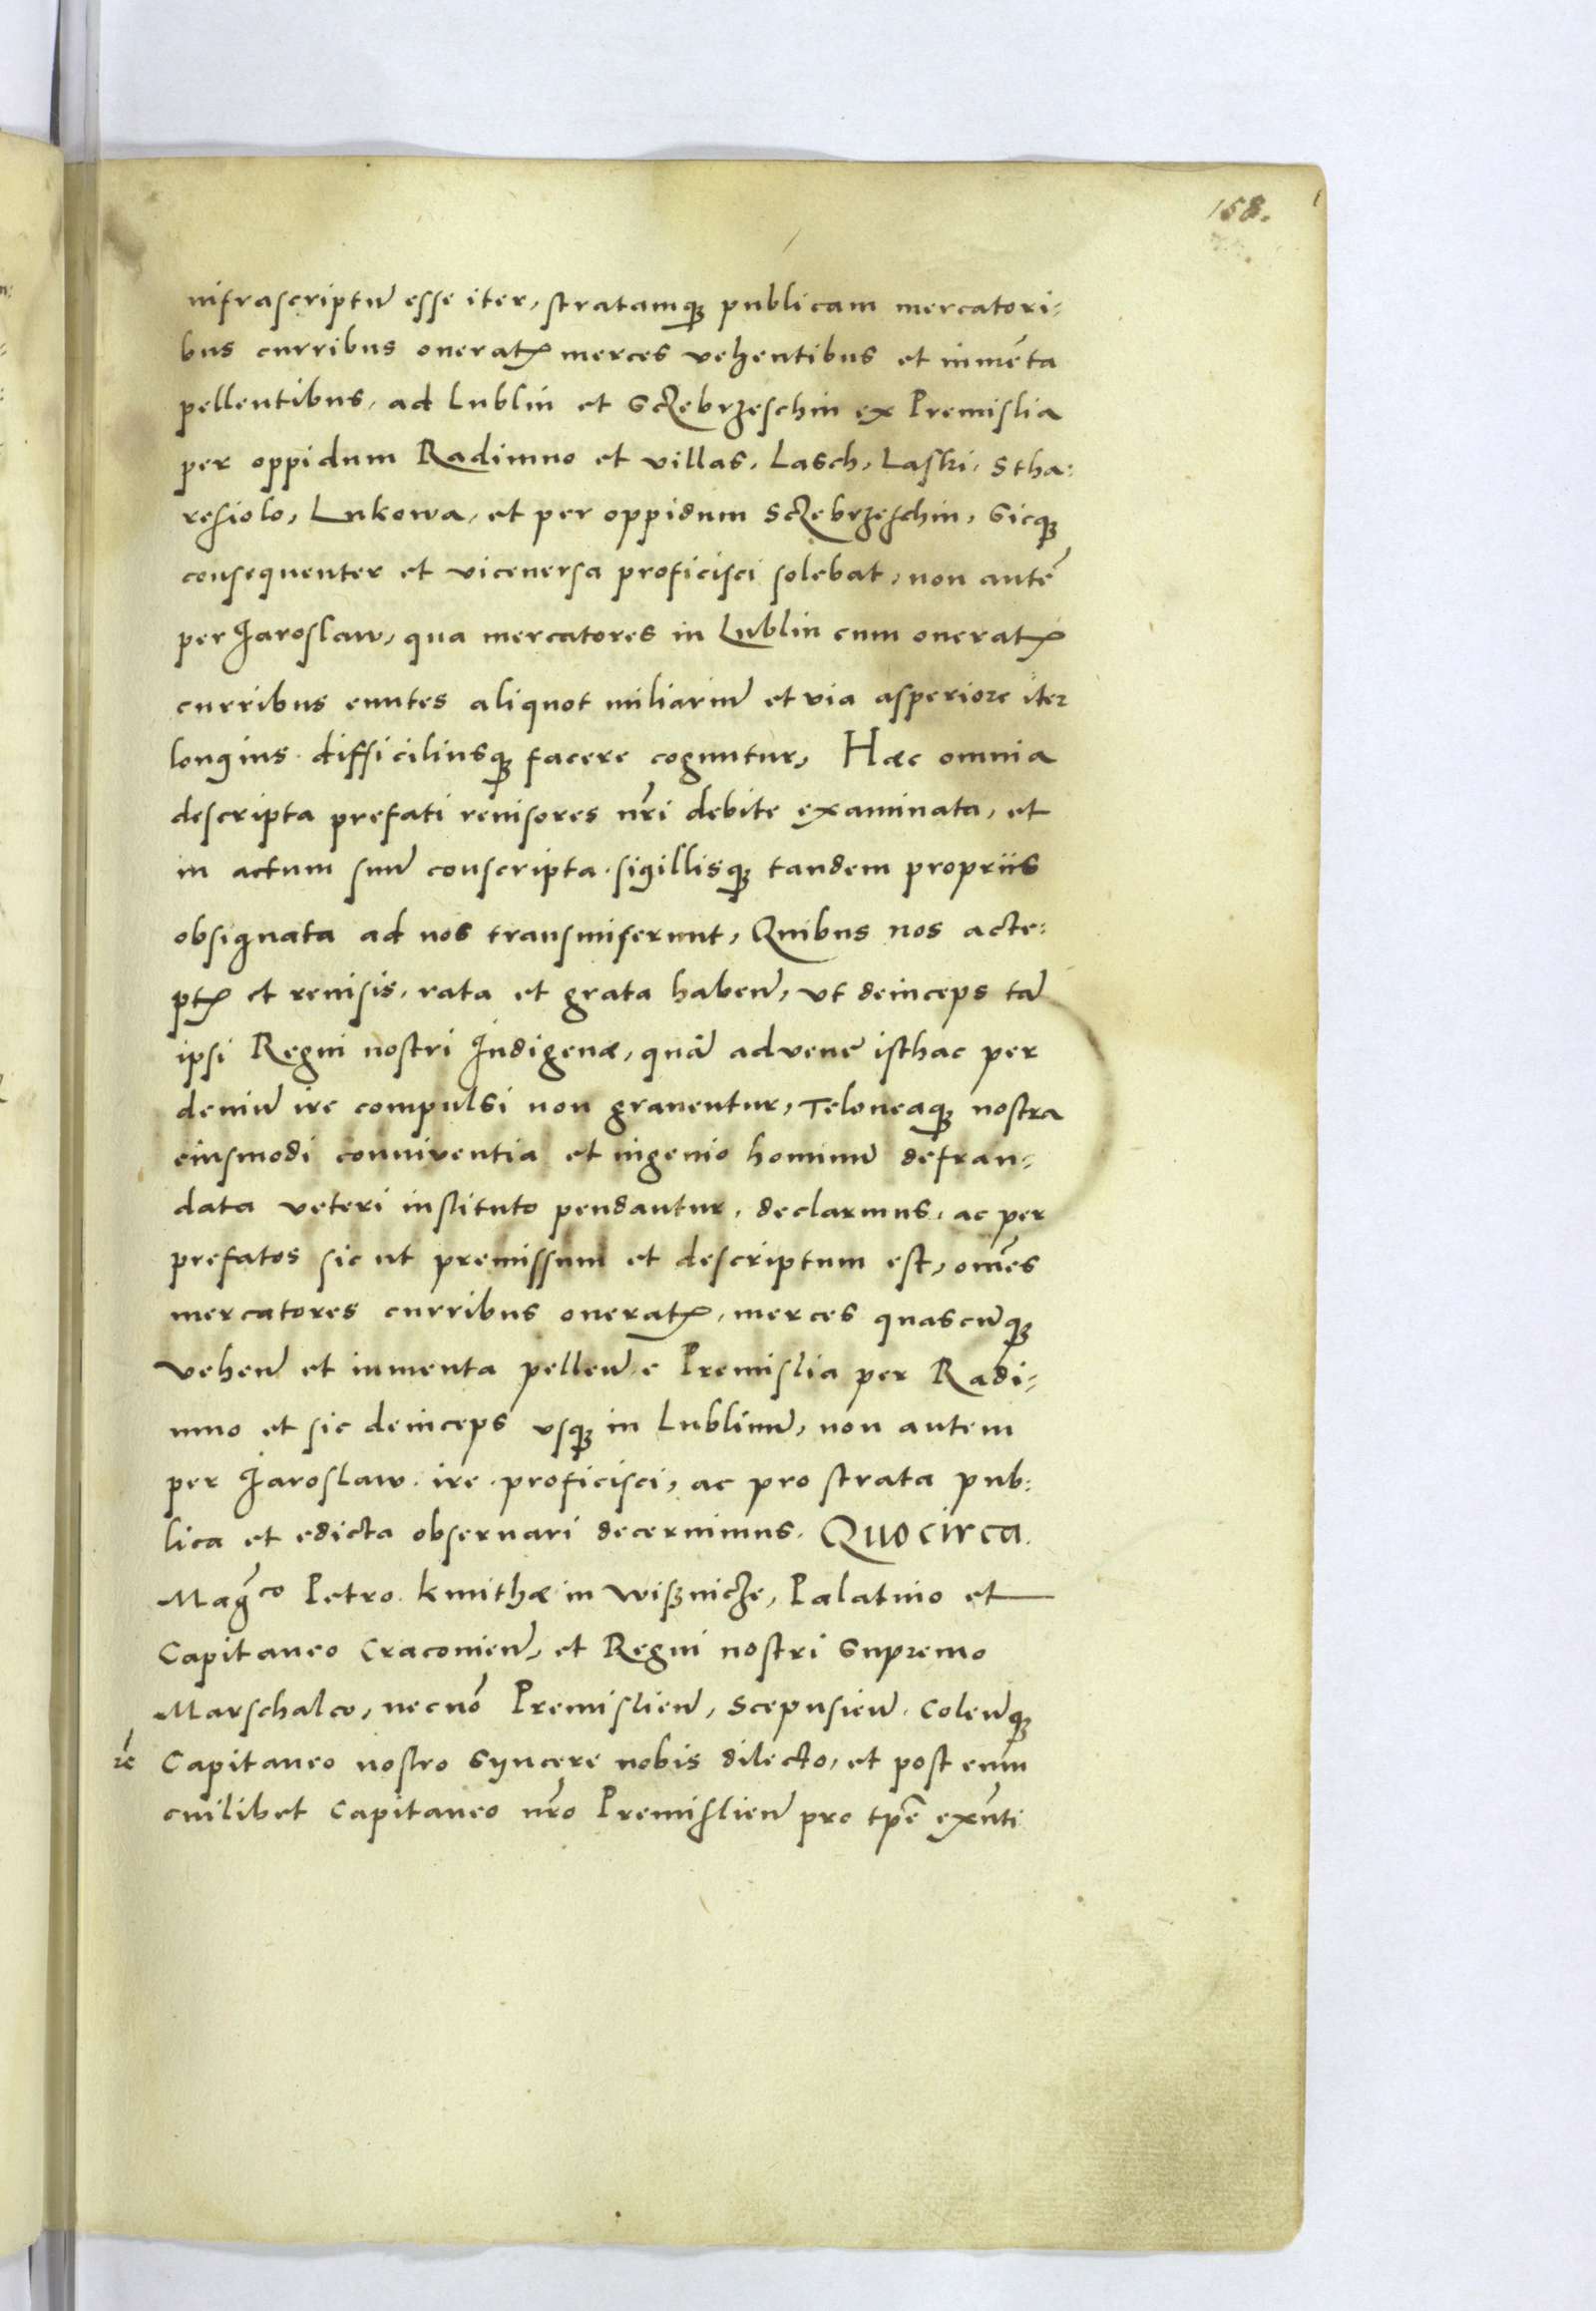 168.
infrascriptũ esse iter, stratamqꝫ publicam mercatori-
bus curribus oneratꝭ merces vehentibus et iumẽta
pellentibus, ad Lublin et Sczebrzeschin ex Premislia
per oppidum Radimno et villas, Lasch, Laski, Stha-
resiolo, Lukowa, et per oppidum Sczebrzeschin, Sicqꝫ
consequenter et viceuersa proficisci solebat, non autẽ
per Jaroslaw, qua mercatores in Lublin cum oneratꝭ
curribus euntes aliquot miliariũ et via asperiore iter
longius difficiliusqꝫ facere coguntur, Haec omnia
descripta prefati reuisores nr̃i debite examinata, et
in actum suũ conscripta sigillisqꝫ tandem propriis
obsignata ad nos transmiserunt, Quibus nos acce-
ptꝭ et reuisis, rata et grata habeñ, vt deinceps tã
ipsi Regni nostri Indigenæ, quã advene isthac per
deuiũ ire compulsi non grauentur, Teloneaqꝫ nostra
eiusmodi conniventia et ingenio hominũ defrau-
data veteri instituto pendantur, declarmus, ac per
prefatos sic ut premissum et descriptum est, om̃es
mercatores curribus oneratꝭ, merces quascũqꝫ
veheñ et iumenta pelleñ e Premislia per Radi-
mno et sic deinceps vsqꝫ in Lublinũ, non autem
per Jaroslaw ire proficisci, ac pro strata pub-
lica et edicta obseruari decernimus. Quocirca.
Mag̃co Petro Kmithæ in Wisznicze, Palatino et
Capitaneo Cracouieñ, et Regni nostri Supremo
Marschalco, necnõ Premislieñ, Scepusieñ, Coleñqꝫ
Capitaneo nostro Syncere nobis dilecto, et post eum
cuilibet Capitaneo nr̃o Premislieñ pro tp̃e exñti